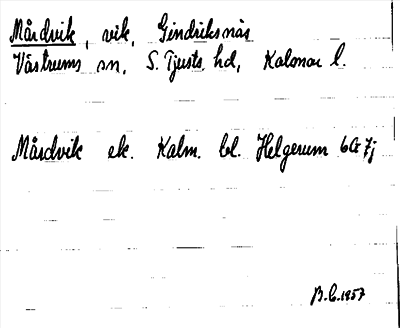 Mårdvik, vik, Gindriksnäs
Västrums sn, S. Tjusts hd, Kalmar l.
Mårdvik ek. Kalm. bl. Helgerum 6G 7j
B.C. 1957